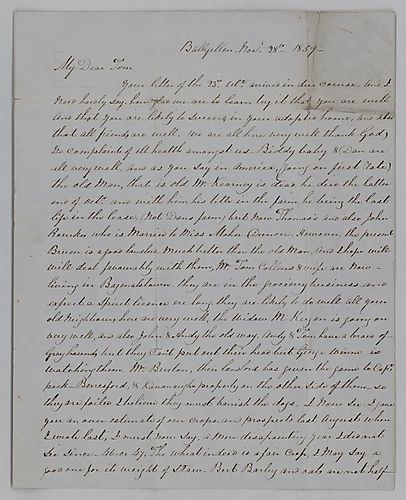 Ballyellen Nov. 28th 1859
My Dear Tom
Your letter of the 25th Ulto. arrived in due course, And I
Need hardly say how we are to learn by it that you are well
And that you are likely to success in your adoptive home, and also
that all friends are well, We are all here very well thank God,
No complaint of ill health amongst us. Biddy baby & Dan are
all very well, and as you Say in America, going on first rate,
the old Man, that is old Mr. Kearney is dead he died the latter
end of octr. and with him his title in the farm he being the last
life in the lease, (Not Dans farm) but now Thomas's and also John
Rourke, who is Married to Miss Maher However, the present
Bruen is a good landlord Much better than the old Man, And I hope will
will deal favourably with them, Mr. Tom Collins & wife are Now
living in Bagenalstown they are in the grocery business and
expect a Spirit licence er long they are likely to do well all your
old Neighbours here are very well the Widow M. Keegan is going on
very well, and also John & Andy the old way, Andy & Tom have a brace of
Greyhounds but they Cant put out their head but George Winne is
watching them, Mr. Burton, their landlord has given the game to Captn.
pack - Beresford, & Kavanaughs property on the other Side of them so
they are foiled I believe they must banish the dogs. I Know Sir I gave
you an over estimate of our Crops and prospects last August when
I wrote last, I must now Say, a More disapointing year I did not
See since 46 or 47. The wheat indeed is a fair Crop, I May Say a
good one for its weight of Straw - But Barley and oats are not half